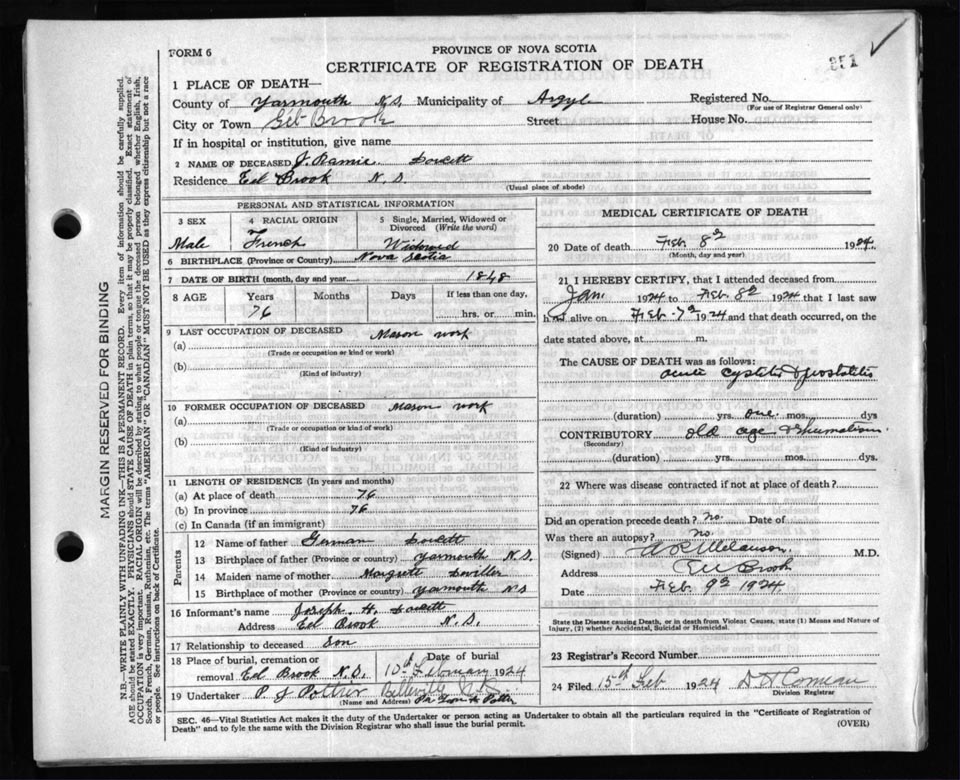 FORM 6
PROVINCE OF NOVA SCOTIA
CERTIFICATE OF REGISTRATION OF DEATH
351
1 PLACE OF DEATH—
County of Yarmouth N.S. Municipality of Argyle Registered No.
(For use of Registrar General only)
City or Town Eel Brook Street House No.
If in hospital or institution, give name
2 NAME OF DECEASED J. Doucett
Residence Eel Brook N.S.
(Usual place of abode)
PERSONAL AND STATISTICAL INFORMATION
3 SEX 4 RACIAL ORIGIN 5 Single, Married, Widowed or Divorced (Write the word)
Male French Widowed
6 BIRTHPLACE (Province or Country) Nova Scotia
7 DATE OF BIRTH (month, day and year) 1848
8 AGE Years Months Days If less than one day,
76 hrs. or min.
9 LAST OCCUPATION OF DECEASED Mason work
(a)
(Trade or occupation or kind or work)
(b)
(Kind of industry)
10 FORMER OCCUPATION OF DECEASED Mason work
(a)
(Trade or occupation or kind of work)
(b)
(Kind of industry)
11 LENGTH OF RESIDENCE (In years and months)
(a) At place of death 76
(b) In province 76
(c) In Canada (if an immigrant)
Parents
12 Name of father German Doucett
13 Birthplace of father (Province or country) Yarmouth N.S.
14 Maiden name of mother Margrett
15 Birthplace of mother (Province or country) Yarmouth N S
16 Informant's name Joseph H. Doucett
Address Eel Brook N.S.
17 Relationship to deceased Son
18 Place of burial, cremation or removal Eel Brook N.S. Date of burial 10th February 1924
19 Undertaker P J Pottier Belleville N.S.
(Name and Address)
MEDICAL CERTIFICATE OF DEATH
20 Date of death Feb 8th 1924.
(Month, day and year)
21 I HEREBY CERTIFY, that I attended deceased from
Jan 1924 to Feb. 8th 1924 that I last saw
him alive on Feb. 7th 1924 and that death occurred, on the
date stated above, at m.
The CAUSE OF DEATH was as follows:
acute cystitis & prostatitis
(duration) yrs. one mos. dys
CONTRIBUTORY old age & rheumatism
(Secondary)
(duration) yrs. mos. dys.
22 Where was disease contracted if not at place of death?
Did an operation precede death? no. Date of
Was there an autopsy? no.
(Signed) Melanson M.D.
Address Eel Brook
Date Feb. 9th 1924.
State the Disease causing Death, or in death from Violent Causes, state (1) Means and Nature of Injury, (2) whether Accidental, Suicidal or Homicidal.
23 Registrar's Record Number
24 Filed 15th Feb 1924 D H Comeau
Division Registrar
SEC. 46—Vital Statistics Act makes it the duty of the Undertaker or person acting as Undertaker to obtain all the particulars required in the "Certificate of Registration of
Death" and to fyle the same with the Division Registrar who shall issue the burial permit. (OVER)
MARGIN RESERVED FOR BINDING
N.B.—WRITE PLAINLY WITH UNFADING INK—THIS IS A PERMANENT RECORD. Every item of information should be carefully supplied.
AGE should be stated EXACTLY. PHYSICIANS should STATE CAUSE OF DEATH in plain terms, so that it may be properly classified. Exact statement of
OCCUPATION is very important. RACIAL ORIGIN will be described by stating to what people or tongue the deceased person belonged whether English, Irish,
Scotch, French, German, Russian, Ruthenian, etc. The terms "AMERICAN" OR "CANADIAN" MUST NOT BE USED as they express citizenship but not a race
or people. See instructions on back of Certificate.